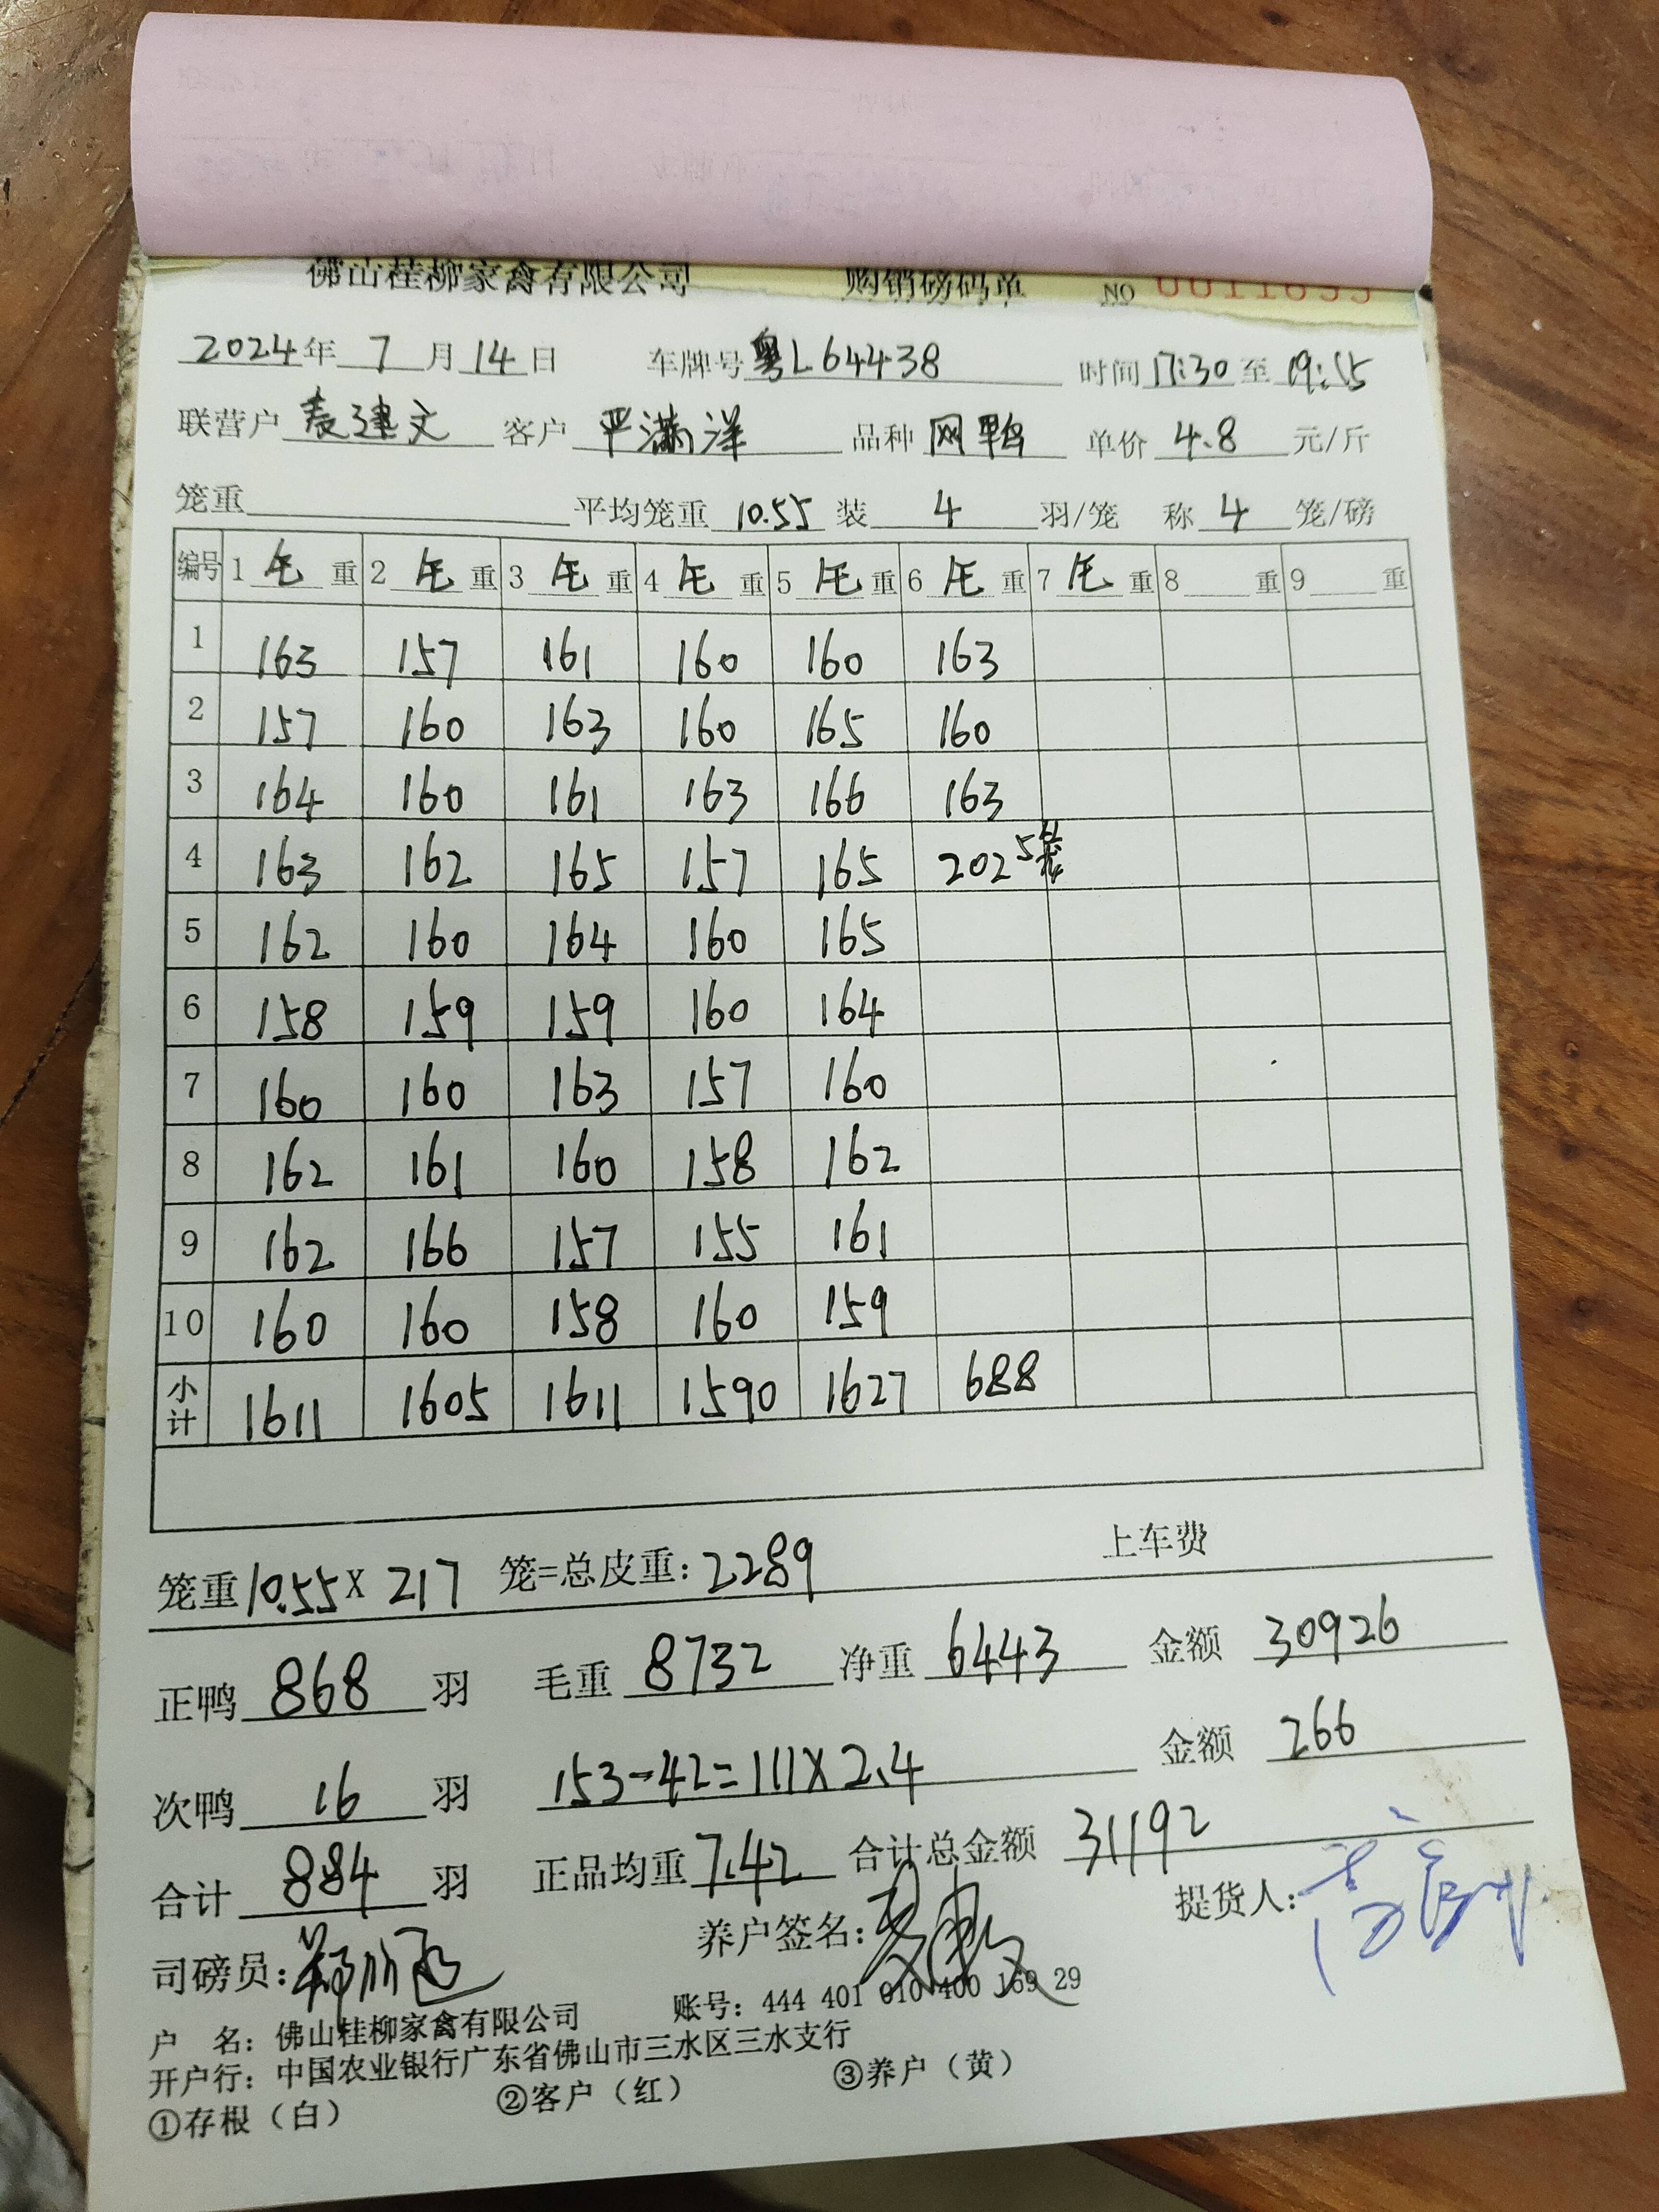 佛山桂柳家禽有限公司 购销磅码单 NO 0011655
2024年 7 月 14 日 车牌号 粤L64438 时间 17:30 至 19:55
联营户 麦建文 客户 严满洋 品种 网鸭 单价 4.8 元/斤
笼重 平均笼重 10.55 装 4 羽/笼 称 4 笼/磅
编号 1 毛 重 2 毛 重 3 毛 重 4 毛 重 5 毛 重 6 毛 重 7 毛 重 8 重 9 重
1 163 157 161 160 160 163
2 157 160 163 160 165 160
3 164 160 161 163 166 163
4 163 162 165 157 165 202 5笼
5 162 160 164 160 165
6 158 159 159 160 164
7 160 160 163 157 160
8 162 161 160 158 162
9 162 166 157 155 161
10 160 160 158 160 159
小计 1611 1605 1611 1590 1627 688
笼重 10.55 X 217 笼=总皮重: 2289 上车费
正鸭 868 羽 毛重 8732 净重 6443 金额 30926
次鸭 16 羽 153-42=111X2.4 金额 266
合计 884 羽 正品均重 7.42 合计总金额 31192
司磅员: 养户签名: 提货人:
户 名: 佛山桂柳家禽有限公司 账号: 444 401 010 400 169 29
开户行: 中国农业银行广东省佛山市三水区三水支行
①存根（白） ②客户（红） ③养户（黄）